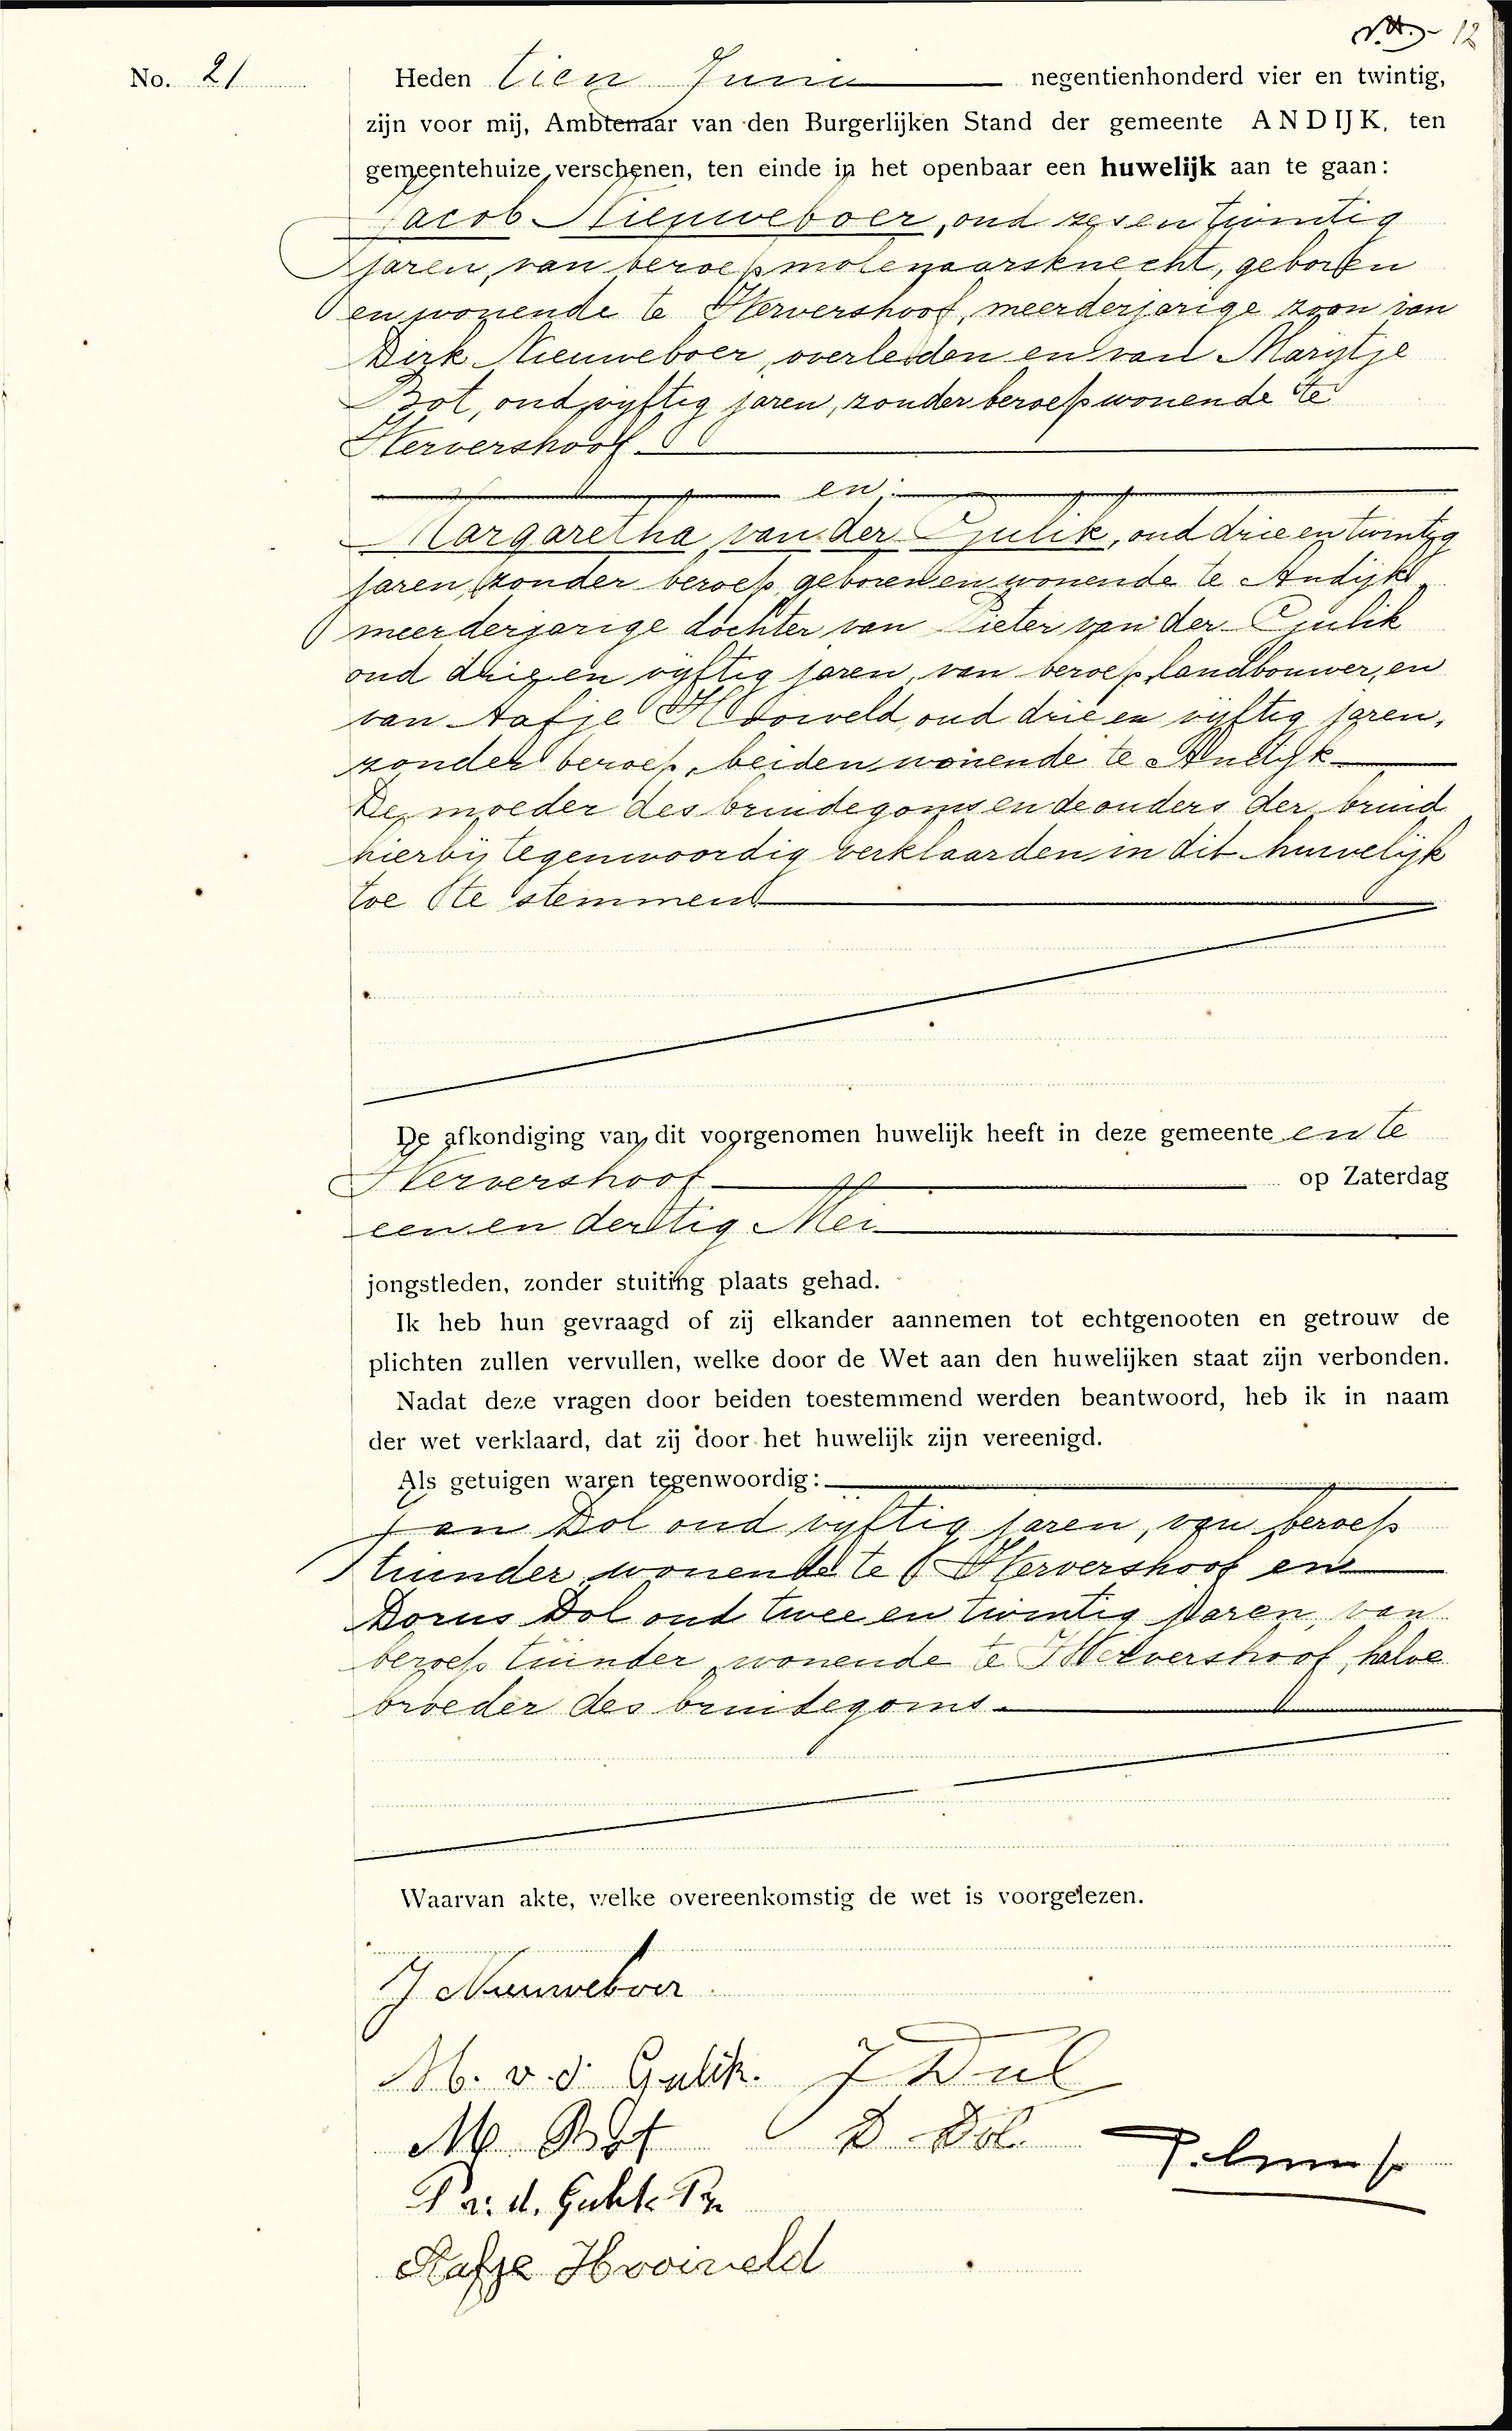 12
No. 21
Heden tien Juni negentienhonderd vier en twintig,
zijn voor mij, Ambtenaar van den Burgerlijken Stand der gemeente ANDIJK, ten
gemeentehuize verschenen, ten einde in het openbaar een huwelijk aan te gaan:
Jacob Nieuweboer, oud zes en twintig
jaren, van beroep molenaarsknecht, geboren
en wonende te Hervershoof, meerderjarige zoon van
Dirk Nieuweboer, overleden en van Marijtje
Bot, oud vijftig jaren, zonder beroep wonende te
Hervershoof.
en:
Margaretha van der Gulik, oud drie en twintig
jaren, zonder beroep, geboren en wonende te Andijk,
meerderjarige dochter van Pieter van der Gulik
oud drie en vijftig jaren, van beroep landbouwer, en
van Aafje Hooiveld oud drie en vijftig jaren,
zonder beroep, beiden wonende te Andijk
De moeder des bruidegoms en de ouders der bruid
hierbij tegenwoordig verklaarden in dit huwelijk
toe te stemmen
De afkondiging van dit voorgenomen huwelijk heeft in deze gemeente en te
Hervershoof op Zaterdag
een en dertig Mei
jongstleden, zonder stuiting plaats gehad.
Ik heb hun gevraagd of zij elkander aannemen tot echtgenooten en getrouw de
plichten zullen vervullen, welke door de Wet aan den huwelijken staat zijn verbonden.
Nadat deze vragen door beiden toestemmend werden beantwoord, heb ik in naam
der wet verklaard, dat zij door het huwelijk zijn vereenigd.
Als getuigen waren tegenwoordig:
Jan Dol oud vijftig jaren, van beroep
tuinder wonende te Hervershoof en
Dorus Dol oud twee en twintig jaren, van
beroep tuinder, wonende te Hervershoof, halve
broeder des bruidegoms.
Waarvan akte, welke overeenkomstig de wet is voorgelezen.
J Nieuweboer
M. v. d. Gulik. J Dol
M Bot D Dol.
P v. d. Gulik Pz
Aafje Hooiveld